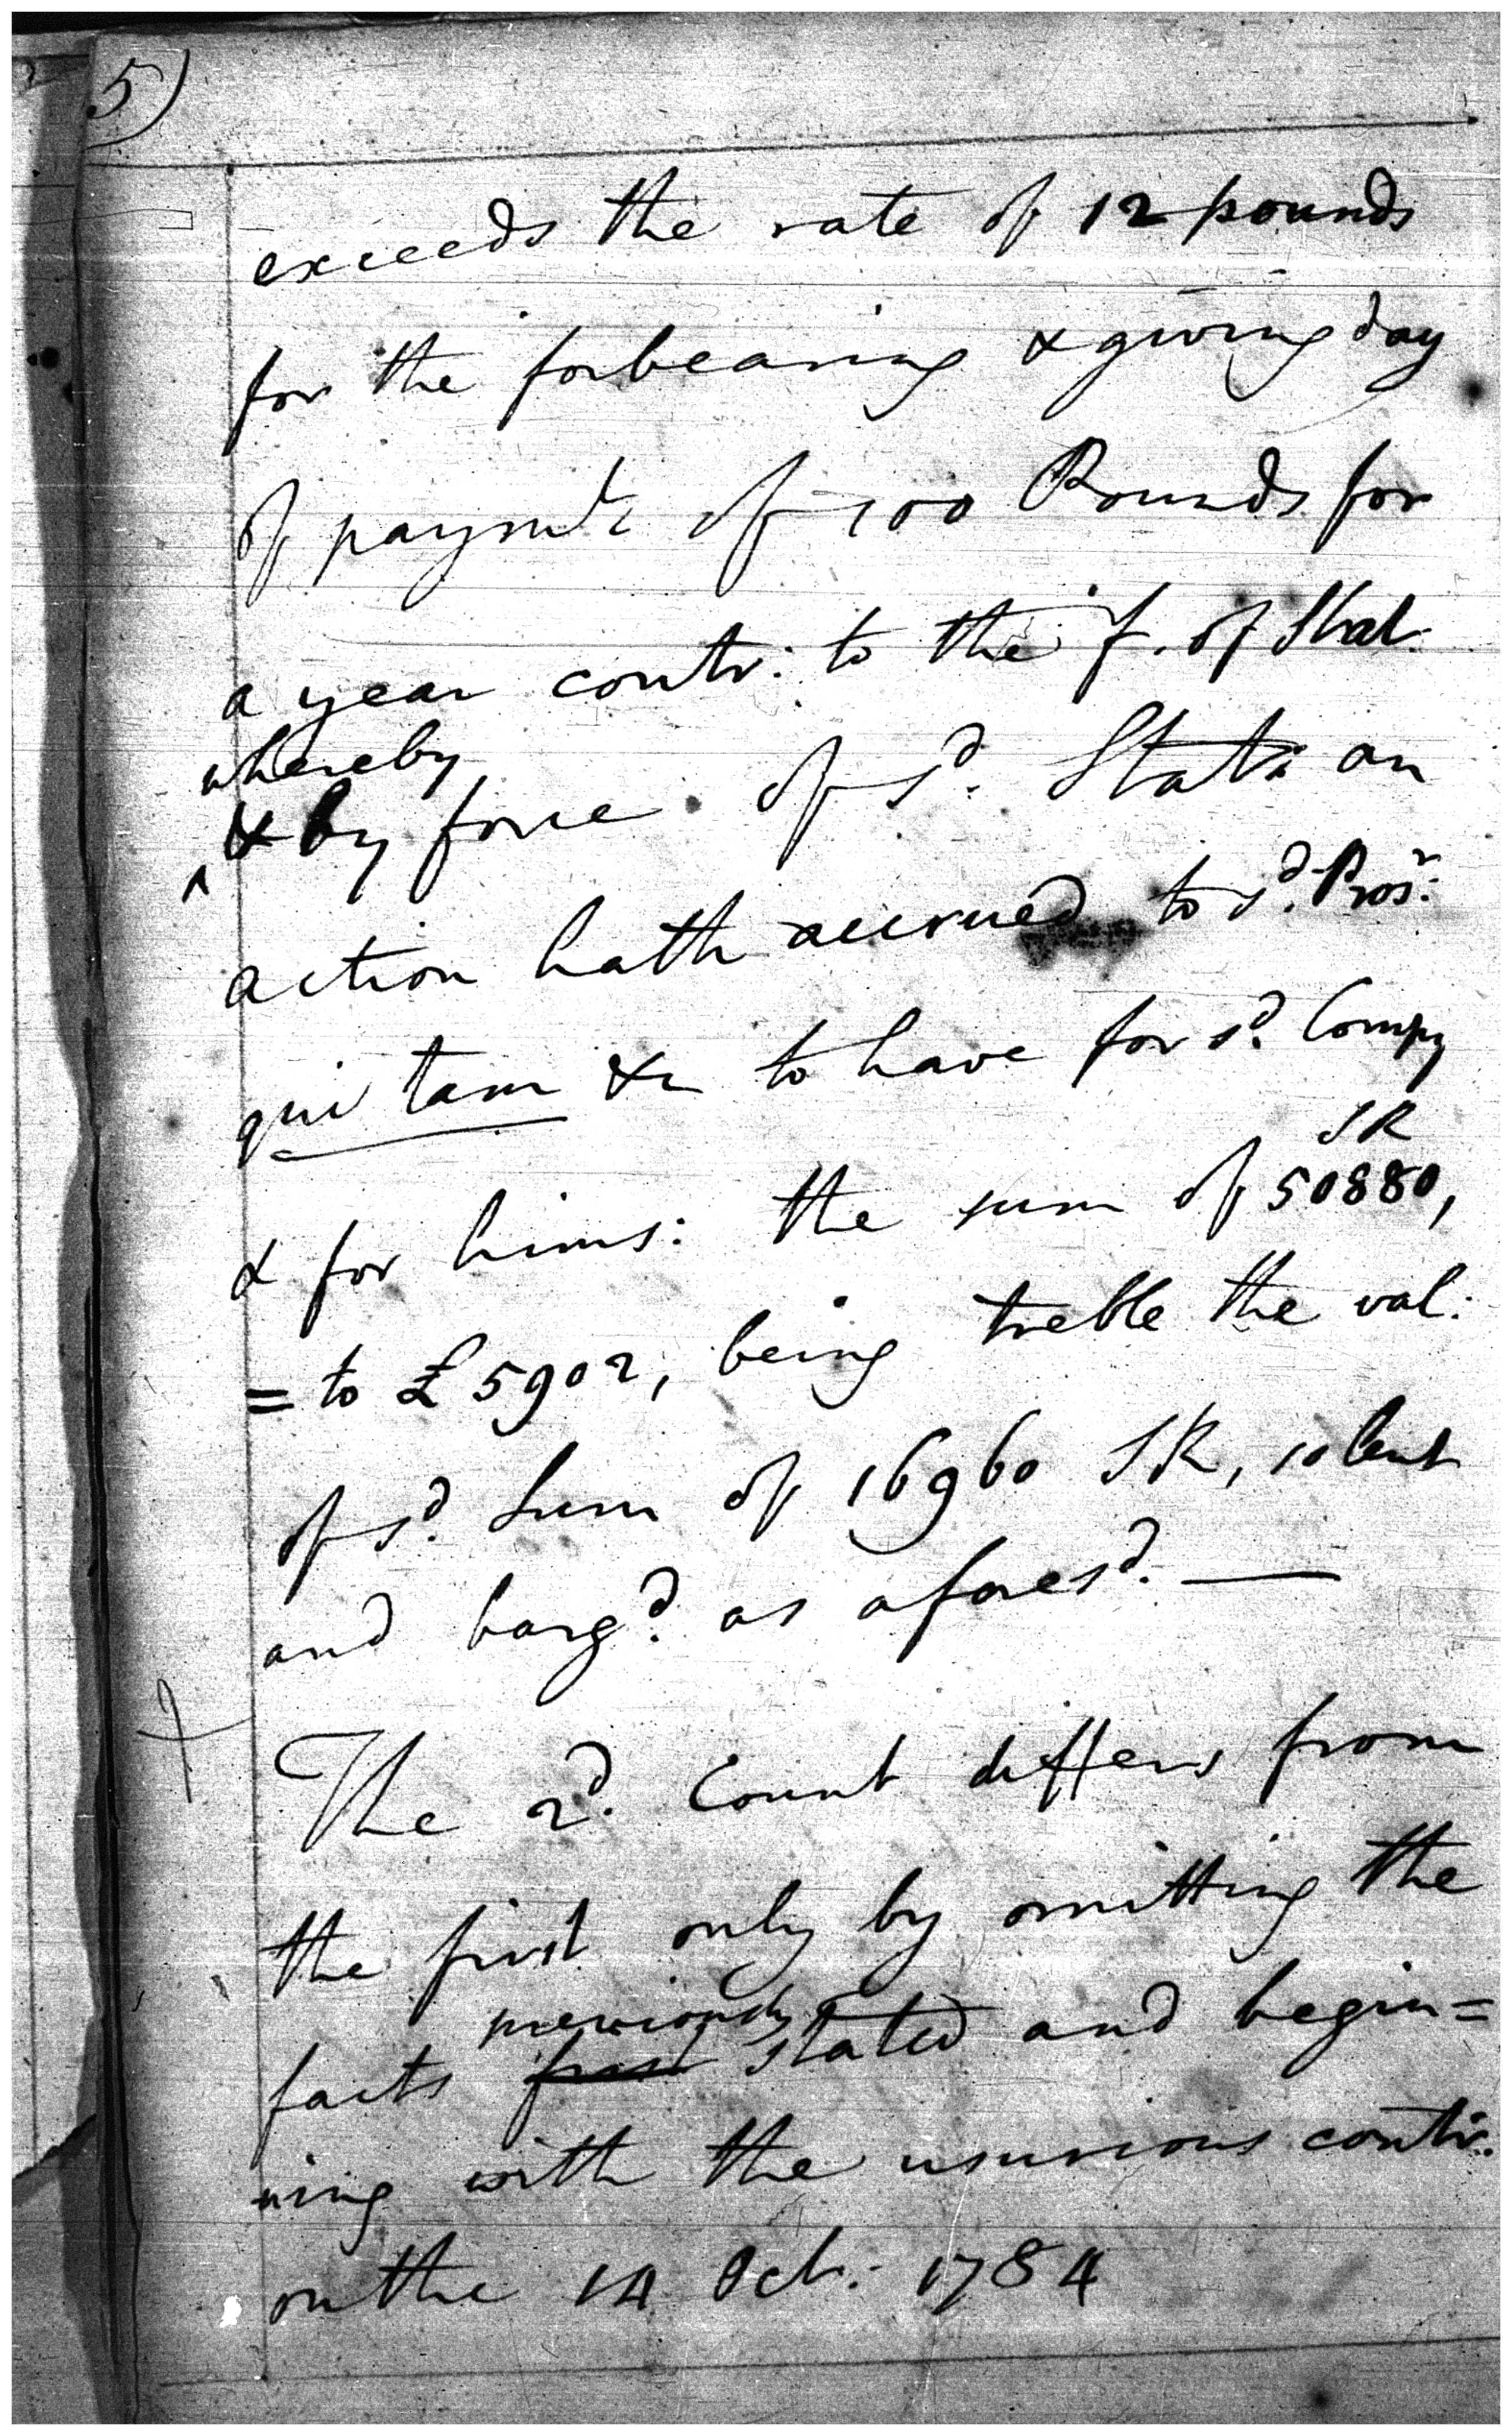 5)
exceeds the rate of 12 pounds
for the forbearing & giving day
of paymt. of 100 Pounds for
a year contr: to the f. of Stat.
whereby
& by force of sd. Stat: an
action hath accrued to sd. Prosr:
qui tam &c to have for sd. Compy
SR
& for hims: the sum of 50880,
= to £5902, being treble the val:
of sd. Sum of 16960 SR, so lent
and bargd. as aforesd. —
The 2d. Count differs from
the first only by omitting the
previously
facts first stated and begin=
ning with the usurious contr.
on the 14 Oct: 1784